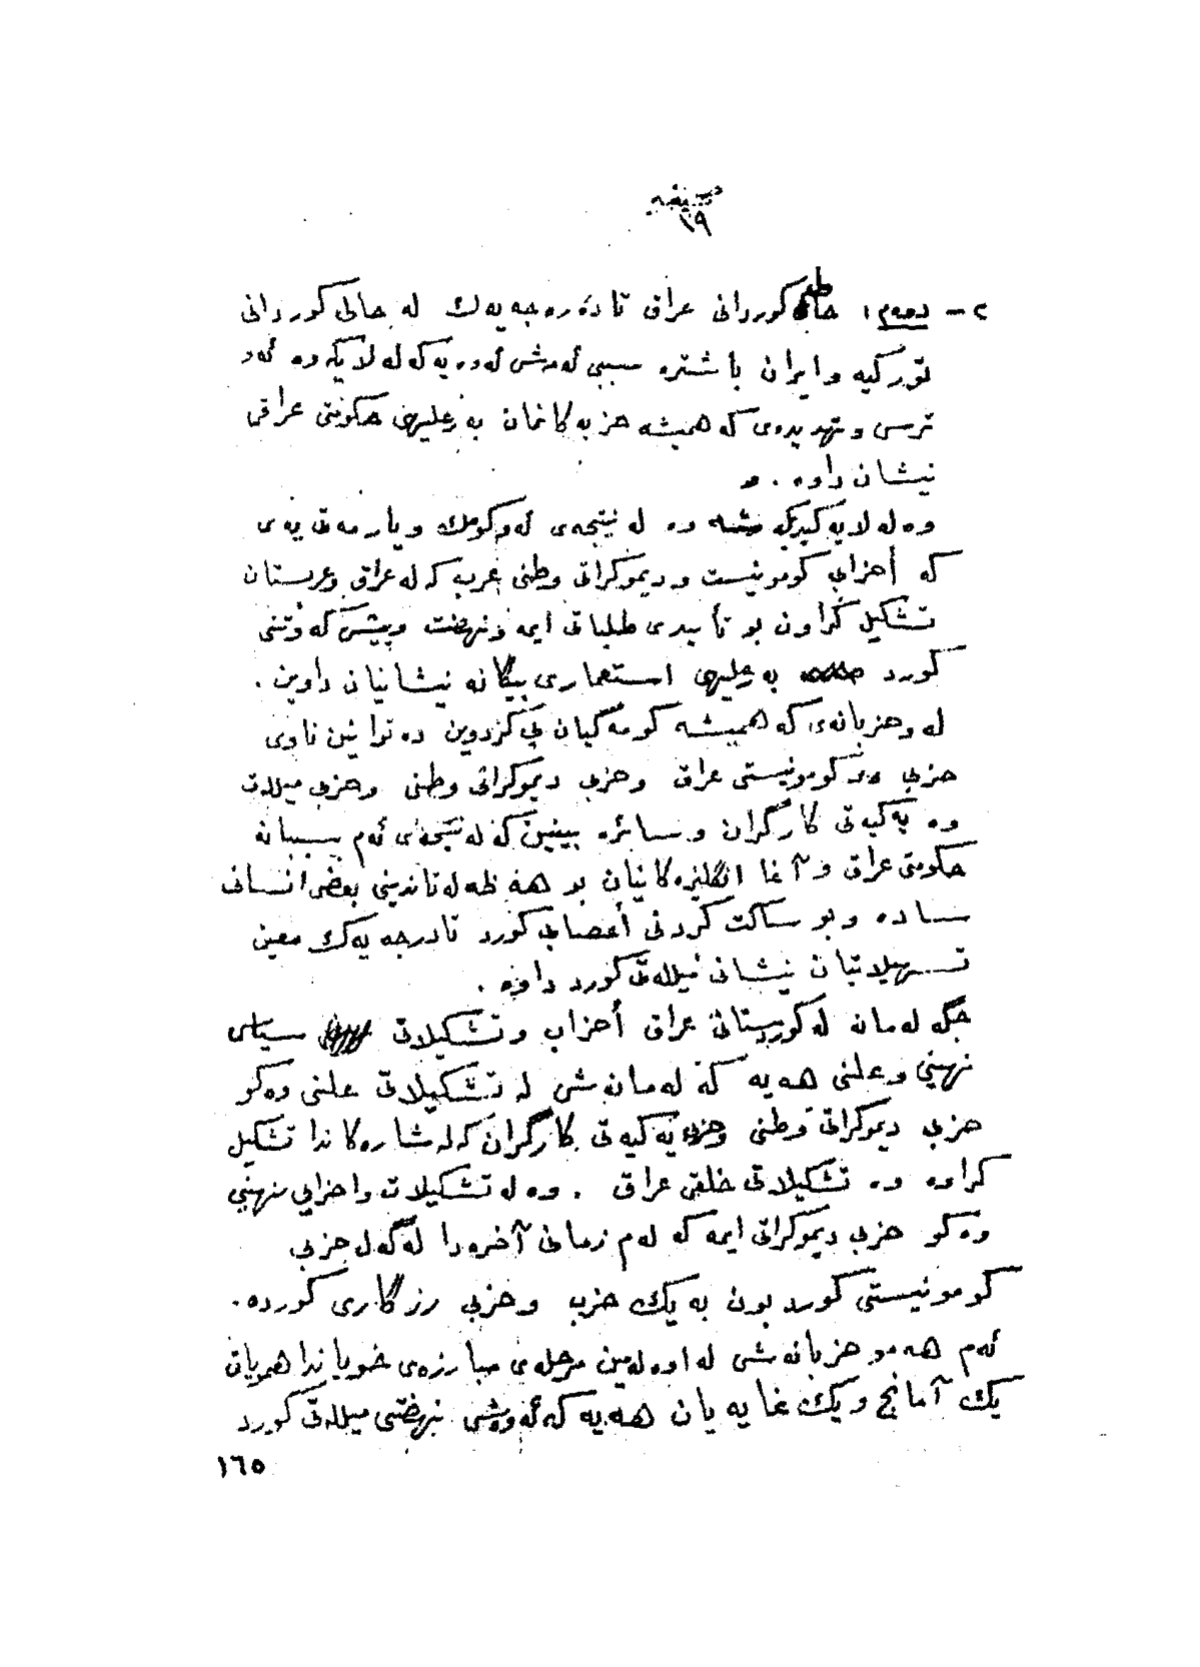 ١٩
٢ - دوەم: حالی کوردانی عراق تا دەرەجەیەك لە حالی کوردانی
تورکیە و ایران باشترە سببی ئەمەش ئەوەیە کە لە لایەکەوە ئەو
ترسی و تهدیدەی کە همیشە حزبەکانمان بە علیهی حکومتی عراقی
نیشان داوە .
وە لە لایەکیکە وە لە نتیجەی ئەو کومك و یارمەتی یەی
کە أحزابی کومونیست و دیموکراتی وطنی عربە کە لە عراق و عربستان
تشکیل کراون بو تأییدی طلباتی ایمە و نهضت و پیشکەوتنی
کورد بە علیهی استعماری بیگانە نیشانیان داوین .
لەو حزبانەی کە همیشە کومەگیان پی کردوین دە توانین ناوی
حزبی کومونیستی عراق وحزبی دیموکراتی وطنی وحزبی میللەتی
وە یەکیەتی کارگران و سائرە ببینین کە لە نتیجەی ئەم سببانە
حکومتی عراق و آغا انگلیزەکانیان بو هەڵخەلەتاندینی بعضی انسانی
سادە و بو ساکت کردنی أعصابی کورد تا درجەیەك معین
تسهیلاتیان نیشانی میللەتی کورد داوە .
جگە لەمانە لە کوردستانی عراق أحزاب و تشکیلاتی سیاسی
نهینی و علنی هەیە کە لەمانەش لە تشکیلاتی علنی وەکو
حزبی دیموکراتی وطنی وحزبی یەکیەتی کارگران کە لە شارەکاندا تشکیل
کراوە وە تشکیلاتی خلقی عراق . وە لە تشکیلات و احزابی نهینی
وەکو حزبی دیموکراتی ایمە کە لەم زمانی آخرەدا لەگەل حزبی
کومونیستی کورد بون بە یەك حزب وحزبی رزگاری کوردە.
ئەم هەمو حزبانەش لە اوەلەمین مرحلەی مبارزەی خویاندا همویان
یك آمانج و یك غایەیان هەیە کە ئەوەش نهضتی میللەتی کورد
١٦٥